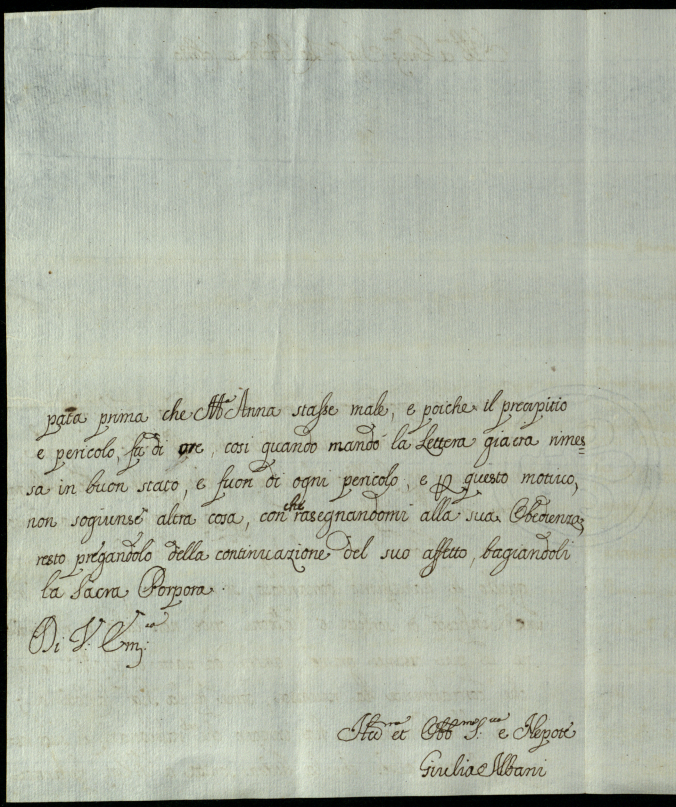 pata prima che M:ª Anna stasse male, e poiche il precipitio
e pericolo, fù di ore, cosi quando mandò la Lettera gia era rimes=
sa in buon stato, e fuori di ogni pericolo, e p questo motivo,
non sogiunse altra cosa, con che rasegnandomi alla sua Obedienza,
resto pregandolo della continuazione del suo affetto, bagiandoli
la Sacra Porpora.
Di V: Em:ᶻᵃ
et Obb:ᵐᵃ S:ᵛᵃ e Nepote
Giulia Albani